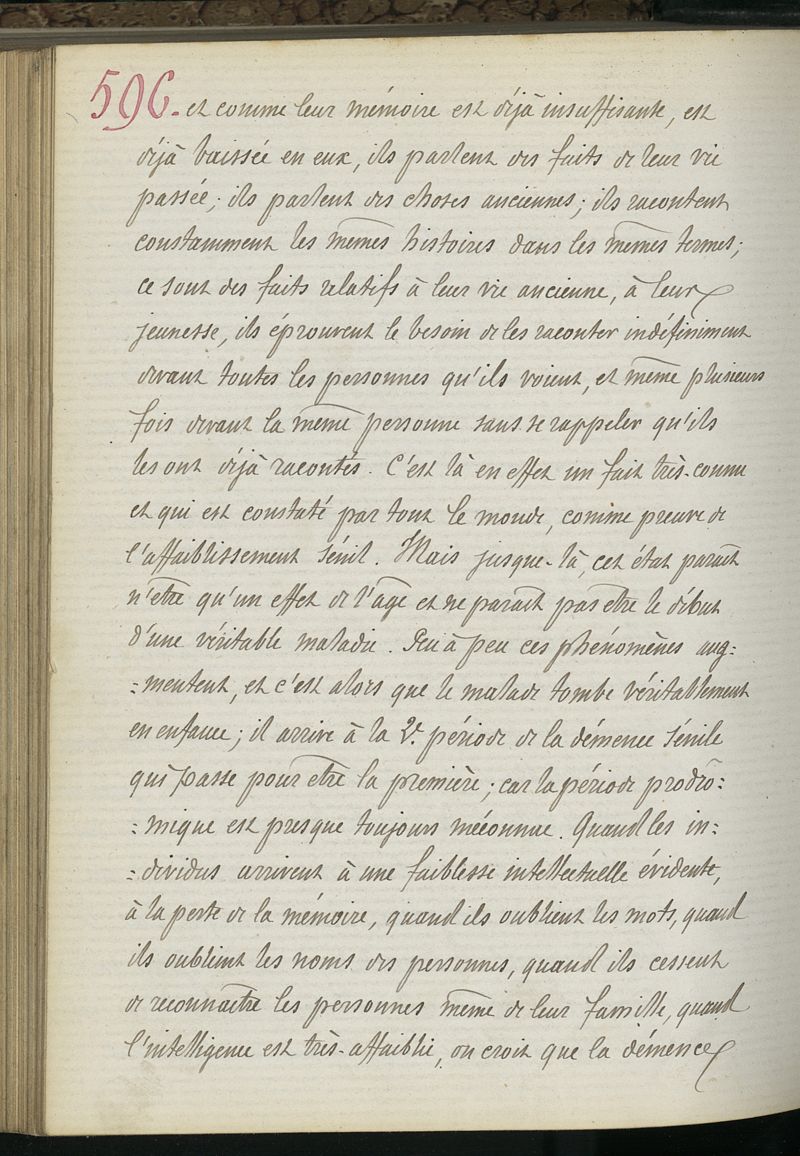 596. et comme leur mémoire est déjà insuffisante, est
déjà baissée en eux, ils parlent des faits de leur vie
passée; ils parlent des choses anciennes; ils racontent
constamment les mêmes histoires dans les mêmes termes;
ce sont des faits relatifs à leur vie ancienne, à leur
jeunesse, ils éprouvent le besoin de les raconter indéfiniment
devant toutes les personnes qu'ils voient, et même plusieurs
fois devant la même personne sans se rappeler qu'ils
les ont déjà racontés. C'est là en effet un fait très-connu
et qui est constaté par tout le monde, comme preuve de
l'affaiblissement sénil. Mais jusque-là, cet état paraît
n'être qu'un effet de l'âge et ne paraît pas être le début
d'une véritable maladie. Peu à peu ces phénomènes aug=
=mentent, et c'est alors que le malade tombe véritablement
en enfance; il arrive à la 2e. période de la démence sénile
qui passe pour être la première; car la période prodrô=
=mique est presque toujours méconnue. Quand les in=
=dividus arrivent à une faiblesse intellectuelle évidente,
à la perte de la mémoire, quand ils oublient les mots, quand
ils oublient les noms des personnes, quand ils cessent
de reconnaître les personnes même de leur famille, quand
l'intelligence est très-affaiblie, on croit que la démence